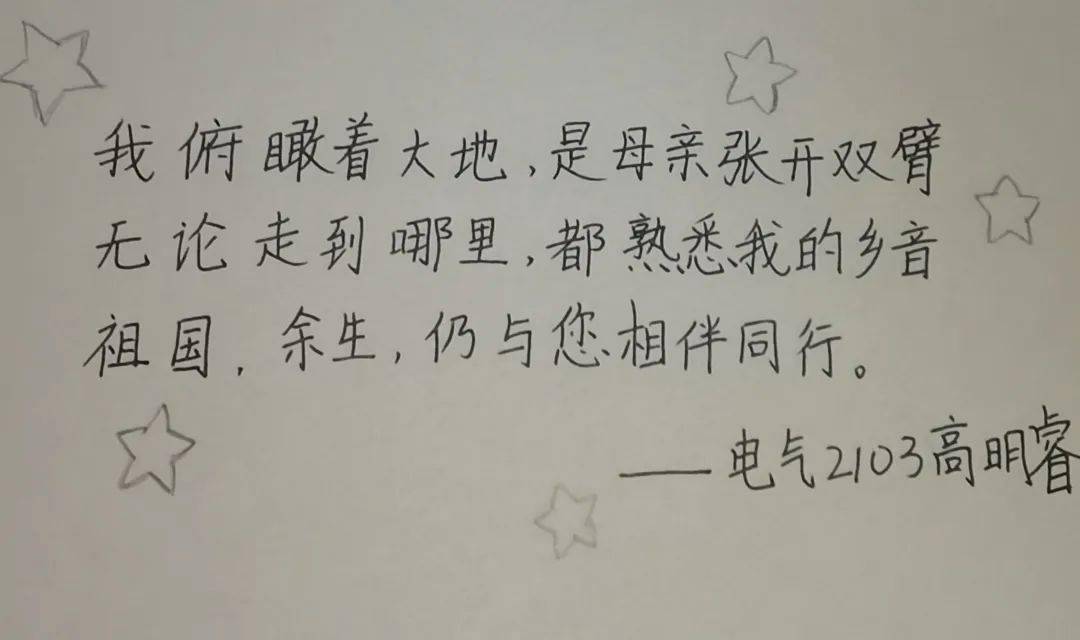 我俯瞰着大地,是母亲张开双臂
无论走到哪里,都熟悉我的乡音
祖国,余生,仍与您相伴同行。
——电气2103高明睿